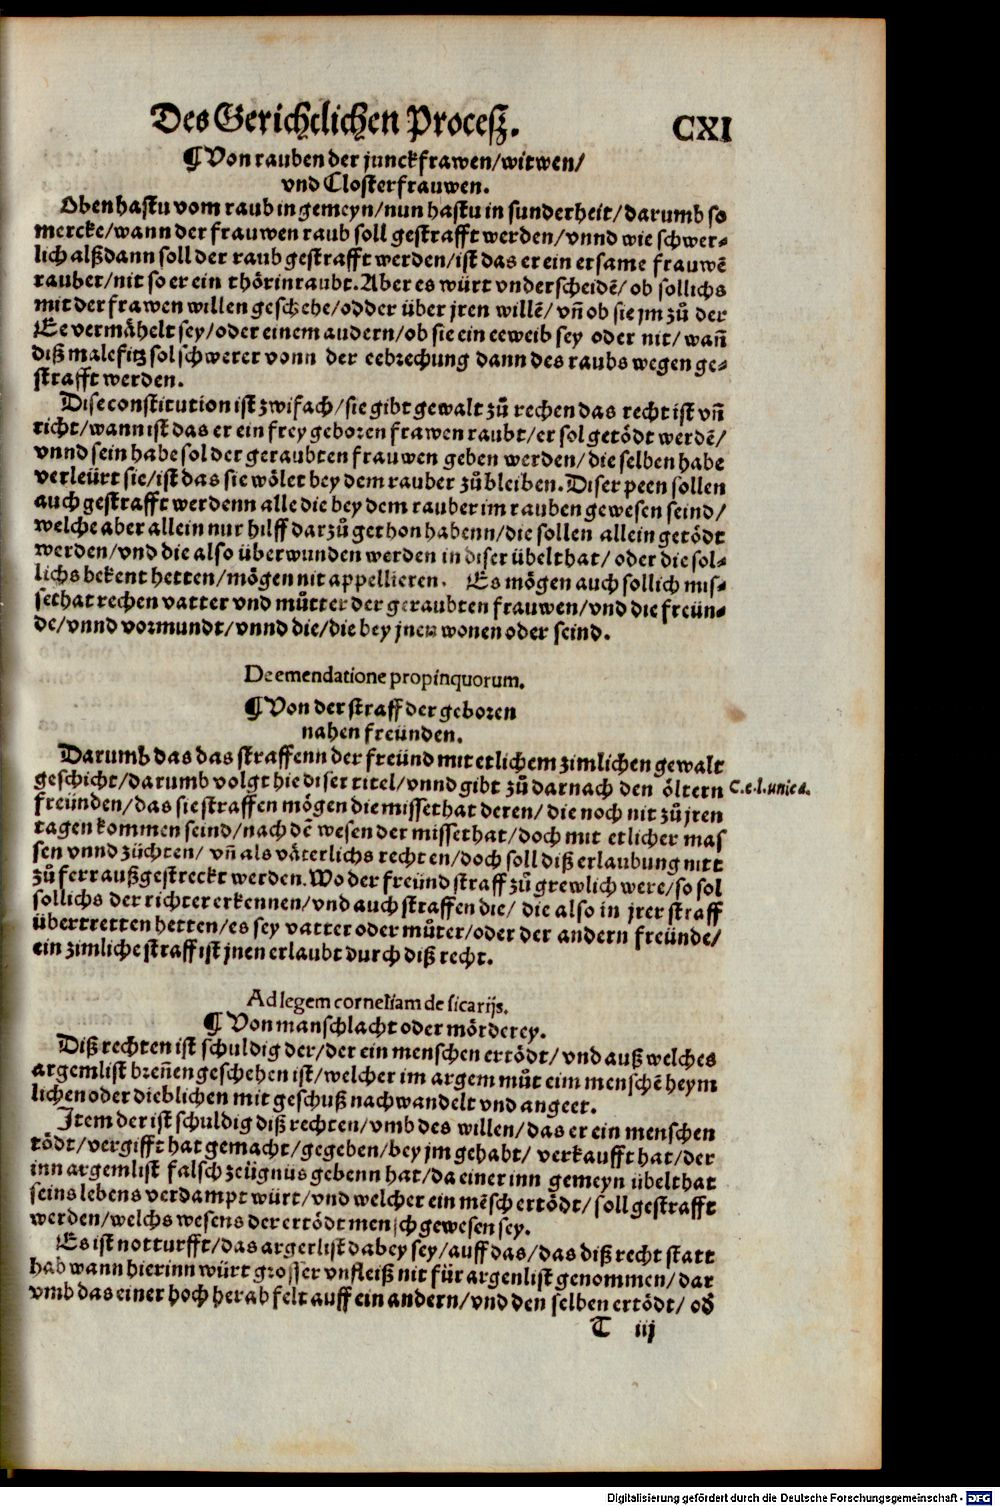 Des Gerichtlichen Proceſʒ.
CXI
¶Von rauben der junckfrawen/witwen/
vnd Cloſterfrauwen.
Oben haſtu vom raub in gemeyn/nun haſtu in ſunderheit/darumb ſo
mercke/wann der frauwen raub ſoll geſtrafft werden/vnnd wie ſchwer⸗
lich alßdann ſoll der raub geſtrafft werden/iſt das er ein erſame frauwē
rauber/nit ſo er ein thörin raubt. Aber es würt vnderſcheidē/ ob ſollichs
mit der frawen willen geſchehe/odder über jren willē/ vn̄ ob ſie jm zů der
Ee vermähelt ſey/oder einem andern/ob ſie ein eeweib ſey oder nit/ wan̄
diß malefitz ſol ſchwerer vonn der eebrechung dann des raubs wegen ge⸗
ſtrafft werden.
Diſe conſtitution iſt zwifach/ſie gibt gewalt zů rechen das recht iſt vn̄
richt/wann iſt das er ein frey geboren frawen raubt/er ſol getödt werdē/
vnnd ſein habe ſol der geraubten frauwen geben werden/die ſelben habe
verleürt ſie/iſt das ſie wölet bey dem rauber zů bleiben. Diſer peen ſollen
auch geſtrafft werdenn alle die bey dem rauber im rauben geweſen ſeind/
welche aber allein nur hilff darzů gethon habenn/die ſollen allein getödt
werden/vnd die alſo überwunden werden in diſer übelthat/ oder die ſol⸗
lichs bekent hetten/mögen nit appellieren. Es mögen auch ſollich miſ⸗
ſethat rechen vatter vnd můtter der geraubten frauwen/vnd die freün⸗
de/vnnd vormundt/vnnd die/die bey jnen wonen oder ſeind.
De emendatione propinquorum.
¶Von der ſtraff der geboren
nahen freünden.
Darumb das das ſtraffenn der freünd mit etlichem zimlichen gewalt
geſchicht/darumb volgt hie diſer titel/vnnd gibt zů darnach den öltern
C.e.l.unica.
freünden/das ſie ſtraffen mögen die miſſethat deren/die noch nit zů jren
tagen kommen ſeind/nach dē weſen der miſſethat/doch mit etlicher maſ
ſen vnnd züchten/ vn̄ als väterlichs rechten/doch ſoll diß erlaubung nitt
zů ferr außgeſtreckt werden. Wo der freünd ſtraff zů grewlich were/ſo ſol
ſollichs der richter erkennen/vnd auch ſtraffen die/ die alſo in jrer ſtraff
übertretten hetten/es ſey vatter oder můter/oder der andern freünde/
ein zimliche ſtraff iſt jnen erlaubt durch diß recht.
Ad legem corneliam de ſicarijs.
¶ Von manſchlacht oder mörderey.
Diß rechten iſt ſchuldig der/der ein menſchen ertödt/vnd auß welches
argemliſt bren̄en geſchehen iſt/welcher im argem můt eim menſchē heym
lichen oder dieblichen mit geſchuß nachwandelt vnd angeet.
Item der iſt ſchuldig diß rechten/vmb des willen/das er ein menſchen
tödt/vergifft hat gemacht/gegeben/bey jm gehabt/ verkaufft hat/der
inn argemliſt falſch zeügnus gebenn hat/da einer inn gemeyn übelthat
ſeins lebens verdampt würt/vnd welcher ein mēſch ertödt/ſoll geſtrafft
werden/welchs weſens der ertödt menſch geweſen ſey.
Es iſt notturfft/das argerliſt dabey ſey/auff das/das diß recht ſtatt
hab wann hierinn würt groſſer vnfleiß nit für argenliſt genommen/dar
vmb das einer hoch herab felt auff ein andern/vnd den ſelben ertödt/ od̄
T iij
Digitalisierung gefördert durch die Deutsche Forschungsgemeinschaft - DFG